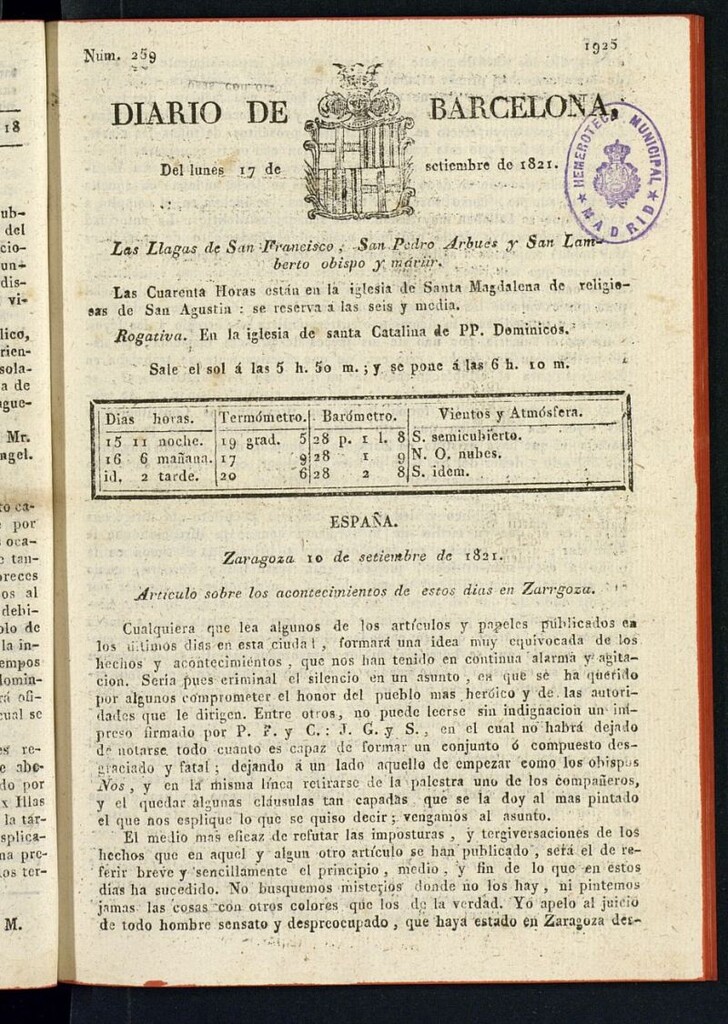 Núm. 259
1925
DIARIO DE BARCELONA,
Del lunes 17 de setiembre de 1821.
HEMEROTECA MUNICIPAL
MADRID
Las Llagas de San Francisco, San Pedro Arbues y San Lam-
berto obispo y mártir.
Las Cuarenta Horas están en la iglesia de Santa Magdalena de religio-
sas de San Agustin : se reserva á las seis y media.
Rogativa. En la iglesia de santa Catalina de PP. Dominicos.
Sale el sol á las 5 h. 50 m. ; y se pone á las 6 h. 10 m.
Dias horas. Termómetro. Barómetro. Vientos y Atmósfera.
15 11 noche. 19 grad. 5 28 p. 1 l. 8 S. semicubierto.
16 6 mañana. 17 9 28 1 9 N. O. nubes.
id. 2 tarde. 20 6 28 2 8 S. idem.
ESPAÑA.
Zaragoza 10 de setiembre de 1821.
Artículo sobre los acontecimientos de estos dias en Zarrgoza.
Cualquiera que lea algunos de los artículos y papeles publicados en
los últimos dias en esta ciudad, formará una idea muy equivocada de los
hechos y acontecimientos, que nos han tenido en continua alarma y agita-
cion. Seria pues criminal el silencio en un asunto, en que se ha querido
por algunos comprometer el honor del pueblo mas heróico y de las autori-
dades que le dirigen. Entre otros, no puede leerse sin indignacion un im-
preso firmado por P. F. y C. : J. G. y S., en el cual no habrá dejado
de notarse todo cuanto es capaz de formar un conjunto ó compuesto des-
graciado y fatal ; dejando á un lado aquello de empezar como los obispos
Nos, y en la misma línea retirarse de la palestra uno de los compañeros,
y el quedar algunas cláusulas tan capadas que se la doy al mas pintado
el que nos esplique lo que se quiso decir ; vengamos al asunto.
El medio mas eficaz de refutar las imposturas, y tergiversaciones de los
hechos que en aquel y algun otro artículo se han publicado, será el de re-
ferir breve y sencillamente el principio, medio, y fin de lo que en estos
dias ha sucedido. No busquemos misterios donde no los hay, ni pintemos
jamas las cosas con otros colores que los de la verdad. Yo apelo al juicio
de todo hombre sensato y despreocupado, que haya estado en Zaragoza des-
18
ub-
del
cio-
un-
dis-
vi-
lico,
rien-
sola-
a de
gue-
Mr.
ngel.
to ca-
por
oca-
tan-
oreces
os al
debi-
olo de
la in-
empos
lomin-
rá ofi-
cual se
es re-
e abo-
do por
x Illas
la tár-
splica-
na pre-
los ter-
M.